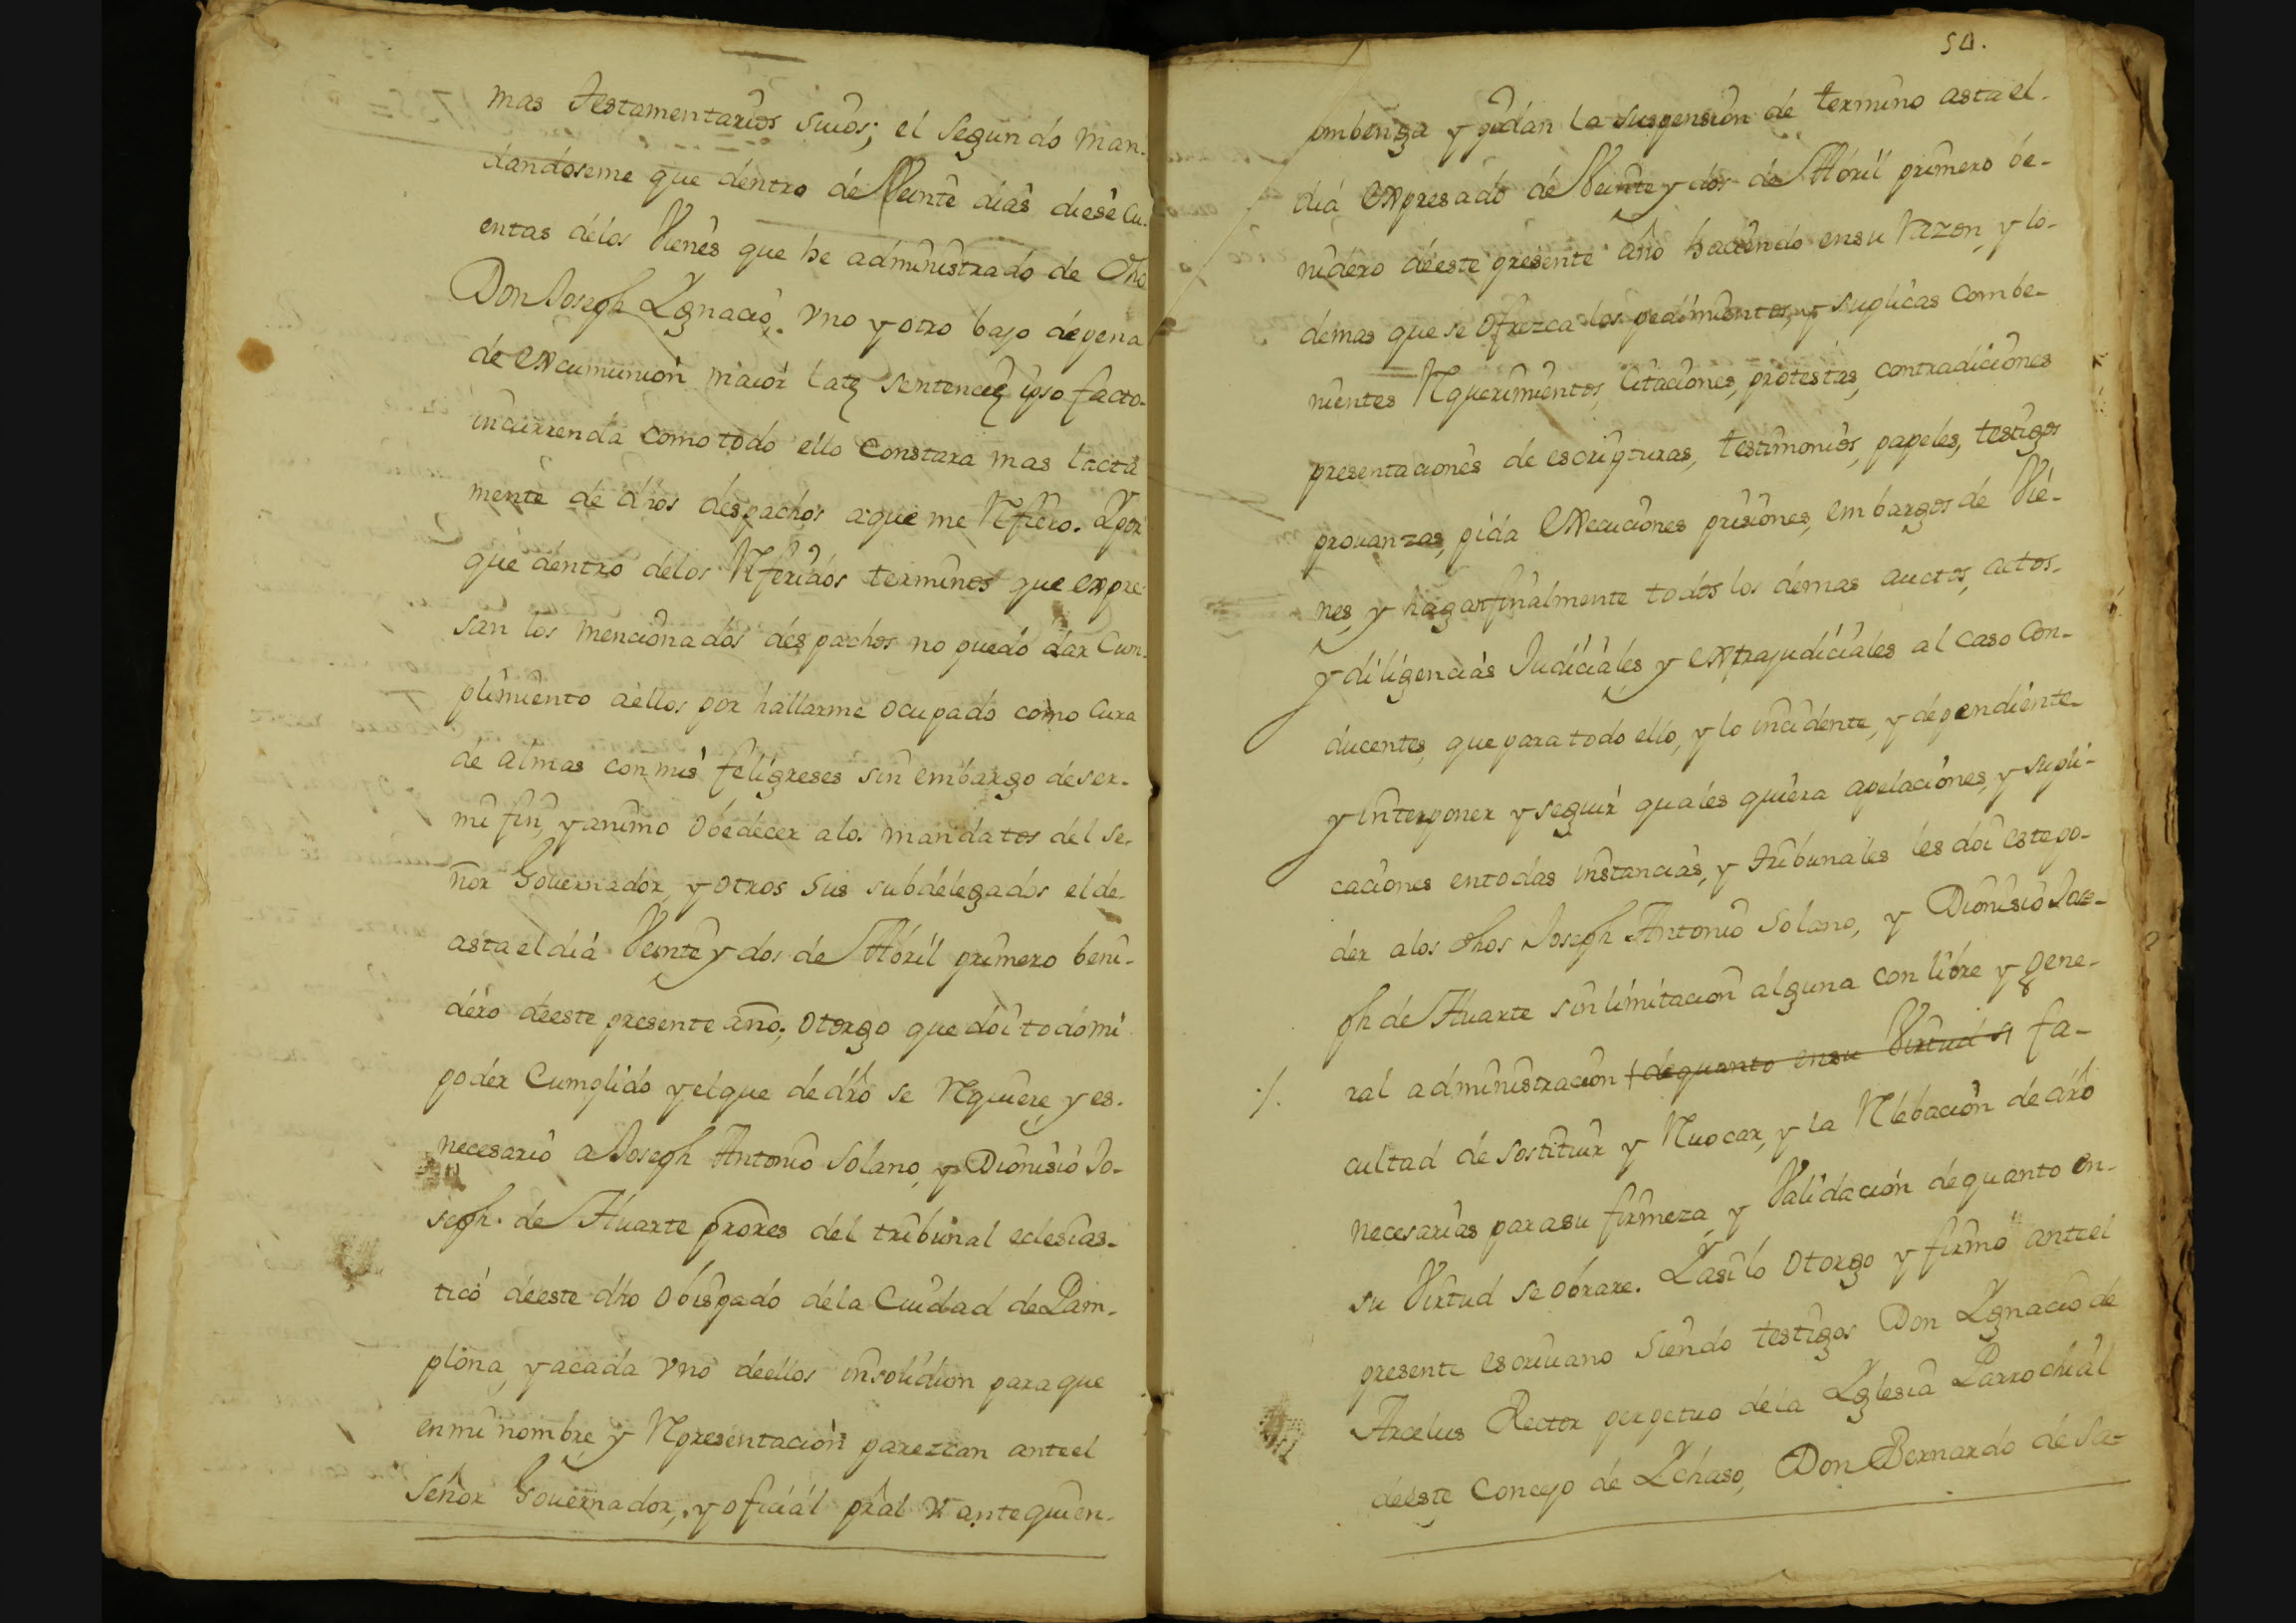 mas testamentarios suios; el segundo man-
dandoseme que dentro de Veinte dias diese cu-
entas delos Vienes que he administrado de dho
Don Joseph Ygnacio, Vno y otro bajo depena
de excumunion maior late sentencie ipso facto
incurrenda como todo ello constara mas lacta
mente de dhos despachos aque me Refiero. Ypor
que dentro delos Referidos terminos que expre
san los mencionados despachos no puedo dar Cum-
plimiento aellos por hallarme ocupado como Cura
de almas con mis feligreses sin embargo de ser
mi fin, y animo obedecer alos mandatos del Se-
ñor Gouernador, y otros sus subdelegados el de
asta el dia Veinte y dos de Abril primero beni-
dero deeste presente año; otorgo que doi todo mi
poder Cumplido y el que de dro se Requiere, y es
necesario a Joseph Antonio Solano, y Dionisio Jo-
seph de Huarte prores del tribunal eclesias-
tico deeste dho obispado dela Ciudad de Pam-
plona, y acada Vno deellos insolidum para que
en mi nombre, y Representacion parezcan ante el
Señor Gouernador, y oficial pral ante quien
50.
combenga y pidan la suspension de termino asta el
dia expresado de Veinte y dos de Abril primero be-
nidero deeste presente año haciendo ensu Razon, y lo
demas que se ofrezca los pedimientos, y suplicas combe-
nientes Requerimientos, citaciones, protestas, contradiciones
presentaciones de escripturas, testimonios, papeles, testigos
prouanzas, pida execuciones prisiones, embargos de Vie-
nes, y hagan finalmente todos los demas auctos, actos
y diligencias Judiciales y extrajudiciales al caso Con-
ducentes, que para todo ello, y lo incidente, y dependiente
y interponer y seguir quales quiera apelaciones, y supli-
caciones entodas instancias, y tribunales les doi este po-
der alos dhos Joseph Antonio Solano, y Dionisio Jose-
ph de Huarte sin limitacion alguna con libre y gene-
ral administracion dequanto ensu Virtud fa-
cultad de sostituir y Reuocar, y la Relebacion de dro
necesarias para su firmeza, y Validacion dequanto en
su Virtud se obrare. Y asi lo otorgo y firmo ante el
presente escriuano siendo testigos Don Ygnacio de
Arcelus Rector perpetuo dela Yglesia Parrochial
deeste Concejo de Ychaso, Don Bernardo de Sa-